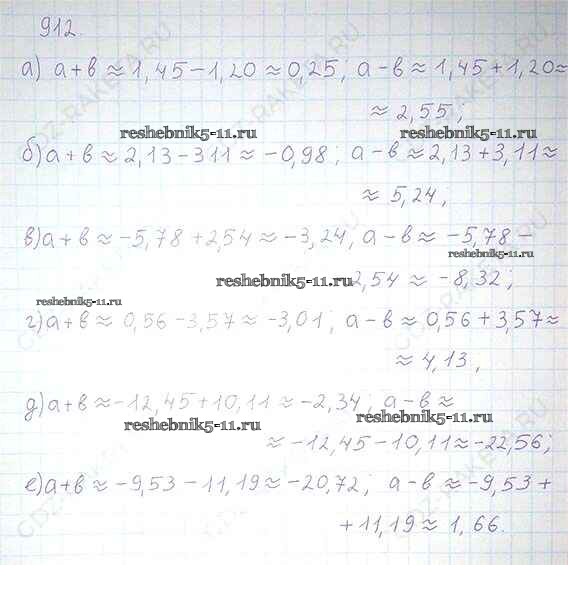 912.
а) а+в≈1,45-1,20≈0,25; а-в≈1,45+1,20≈
≈2,55;
reshebnik5-11.ru reshebnik5-11.ru
б) а+в≈2,13-311≈-0,98; а-в≈2,13+3,11≈
≈5,24,
в) а+в≈-5,78+2,54≈-3,24, а-в≈-5,78-
reshebnik5-11.ru
reshebnik5-11.ru 2,54≈-8,32;
reshebnik5-11.ru
г) а+в≈0,56-3,57≈-3,01; а-в≈0,56+3,57≈
≈4,13,
д) а+в≈-12,45+10,11≈-2,34; а-в≈
reshebnik5-11.ru reshebnik5-11.ru
≈-12,45-10,11≈-22,56;
е) а+в≈-9,53-11,19≈-20,72; а-в≈-9,53+
+11,19≈1,66.